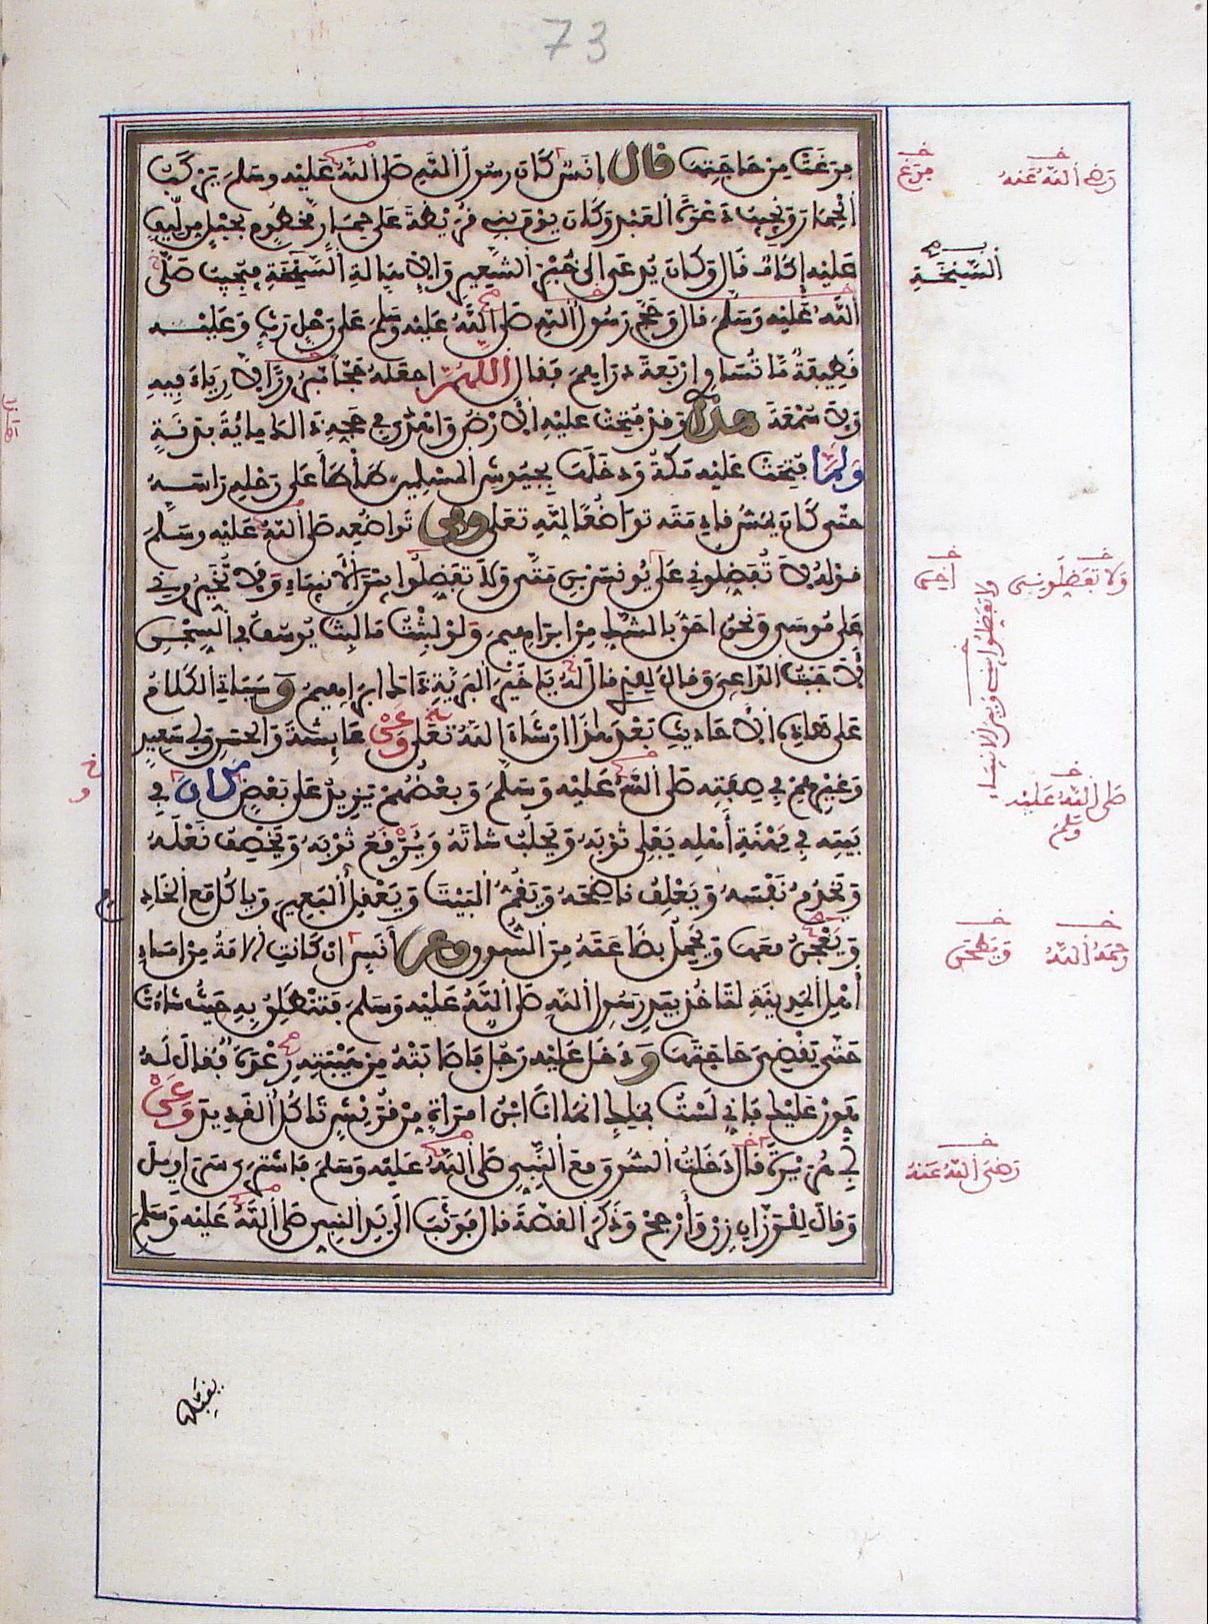 73
فرغت من حاجتها قال انس كان رسول الله صلى الله عليه وسلم يركب
الحمار ويجيب دعوة العبد وكان يوم بني قريظة على حمار مخطوم بحبل من ليف
عليه إكاف قال وكان يدعى الى خبز الشعير والاهالة السنخة فيجيب صلى
الله عليه وسلم قال وحج رسول الله صلى الله عليه وسلم على رحل رث وعليه
قطيفة ما تساوي اربعة دراهم فقال اللهم اجعله حجا مبرورا لا رياء فيه
ولا سمعة هذا وقد فتحت عليه الارض واهدى في حجه ذلك مائة بدنة
ولما فتحت عليه مكة ودخلت بجيوش المسلمين طأطأ على رحله راسه
حتى كاد يمس قادمته تواضعا لله تعلى ومن تواضعه صلى الله عليه وسلم
قوله لا تفضلوني على يونس بن متى ولا تفضلوا بين الانبياء ولا تخيروني
على موسى ونحن احق بالشك من ابراهيم ولو لبثت ما لبث يوسف في السجن
لاجبت الداعي وقال للذي قال له يا خير البرية ذاك ابراهيم وسياتي الكلام
على هذه الاحاديث بعد هذا ان شاء الله تعلى وعن عايشة والحسن وابي سعيد
وغيرهم في صفته صلى الله عليه وسلم وبعضهم يزيد على بعض كان في
بيته في مهنة أهله يفلي ثوبه ويحلب شاته ويرقع ثوبه ويخصف نعله
ويخدم نفسه ويعلف ناضحه ويقم البيت ويعقل البعير وياكل مع الخادم
ويعجن معها ويحمل بضاعته من السوق وعن أنس ان كانت الامة من اماء
أهل المدينة لتاخذ بيد رسول الله صلى الله عليه وسلم فتنطلق به حيث شاءت
حتى يقضي حاجتها ودخل عليه رجل فاصابته من هيبته رعدة فقال له
هون عليك فاني لست بملك انما انا ابن امراة من قريش تاكل القديد وعن
أبي هريرة قال دخلت السوق مع النبي صلى الله عليه وسلم فاشترى سراويل
وقال للوزان زن وأرجح وذكر القصة قال فوثب الى يد النبي صلى الله عليه وسلم
يقبلها
رضي الله عنه
فرغ
السنخة
ولا تفضلوني
ولا تفضلوا بين الانبياء
صلى الله عليه وسلم
رحمه الله
رضي الله عنه